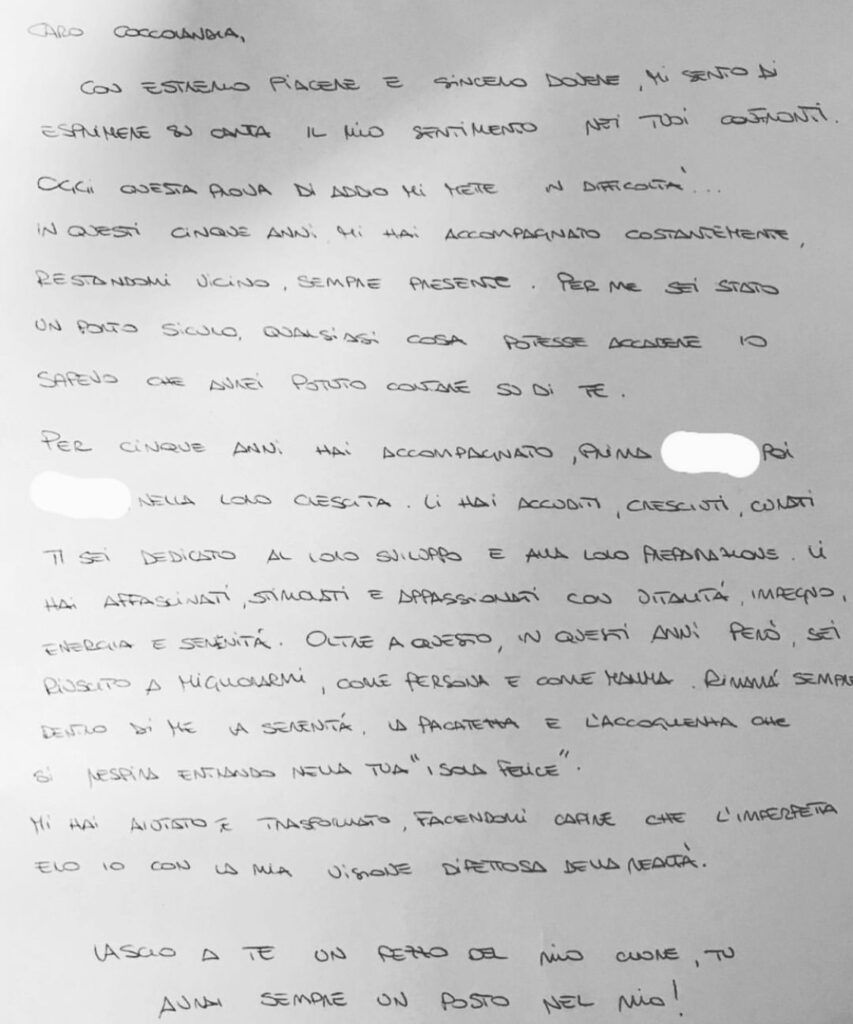 CARO COCCOLANDIA,
CON ESTREMO PIACERE E SINCERO DOVERE, MI SENTO DI
ESPRIMERE SU CARTA IL MIO SENTIMENTO NEI TUOI CONFRONTI.
OGGI QUESTA PROVA DI ADDIO MI METTE IN DIFFICOLTÀ...
IN QUESTI CINQUE ANNI MI HAI ACCOMPAGNATO COSTANTEMENTE,
RESTANDOMI VICINO, SEMPRE PRESENTE. PER ME SEI STATO
UN PORTO SICURO, QUALSIASI COSA POTESSE ACCADERE IO
SAPEVO CHE AVREI POTUTO CONTARE SU DI TE.
PER CINQUE ANNI HAI ACCOMPAGNATO, PRIMA POI
NELLA LORO CRESCITA. LI HAI ACCUDITI, CRESCIUTI, CURATI
TI SEI DEDICATO AL LORO SVILUPPO E ALLA LORO PREPARAZIONE. LI
HAI AFFASCINATI, STIMOLATI E APPASSIONATI CON VITALITÁ, IMPEGNO,
ENERGIA E SERENITÁ. OLTRE A QUESTO, IN QUESTI ANNI PERÒ, SEI
RIUSCITO A MIGLIORARMI, COME PERSONA E COME MAMMA. RIMARRÁ SEMPRE
DENTRO DI ME LA SERENITÁ, LA PACATEZZA E L'ACCOGLIENZA CHE
SI RESPIRA ENTRANDO NELLA TUA "ISOLA FELICE".
MI HAI AIUTATO E TRASFORMATO, FACENDOMI CAPIRE CHE L'IMPERFETTA
ERO IO CON LA MIA VISIONE DIFETTOSA DELLA REALTÁ.
LASCIO A TE UN PEZZO DEL MIO CUORE, TU
AVRAI SEMPRE UN POSTO NEL MIO!